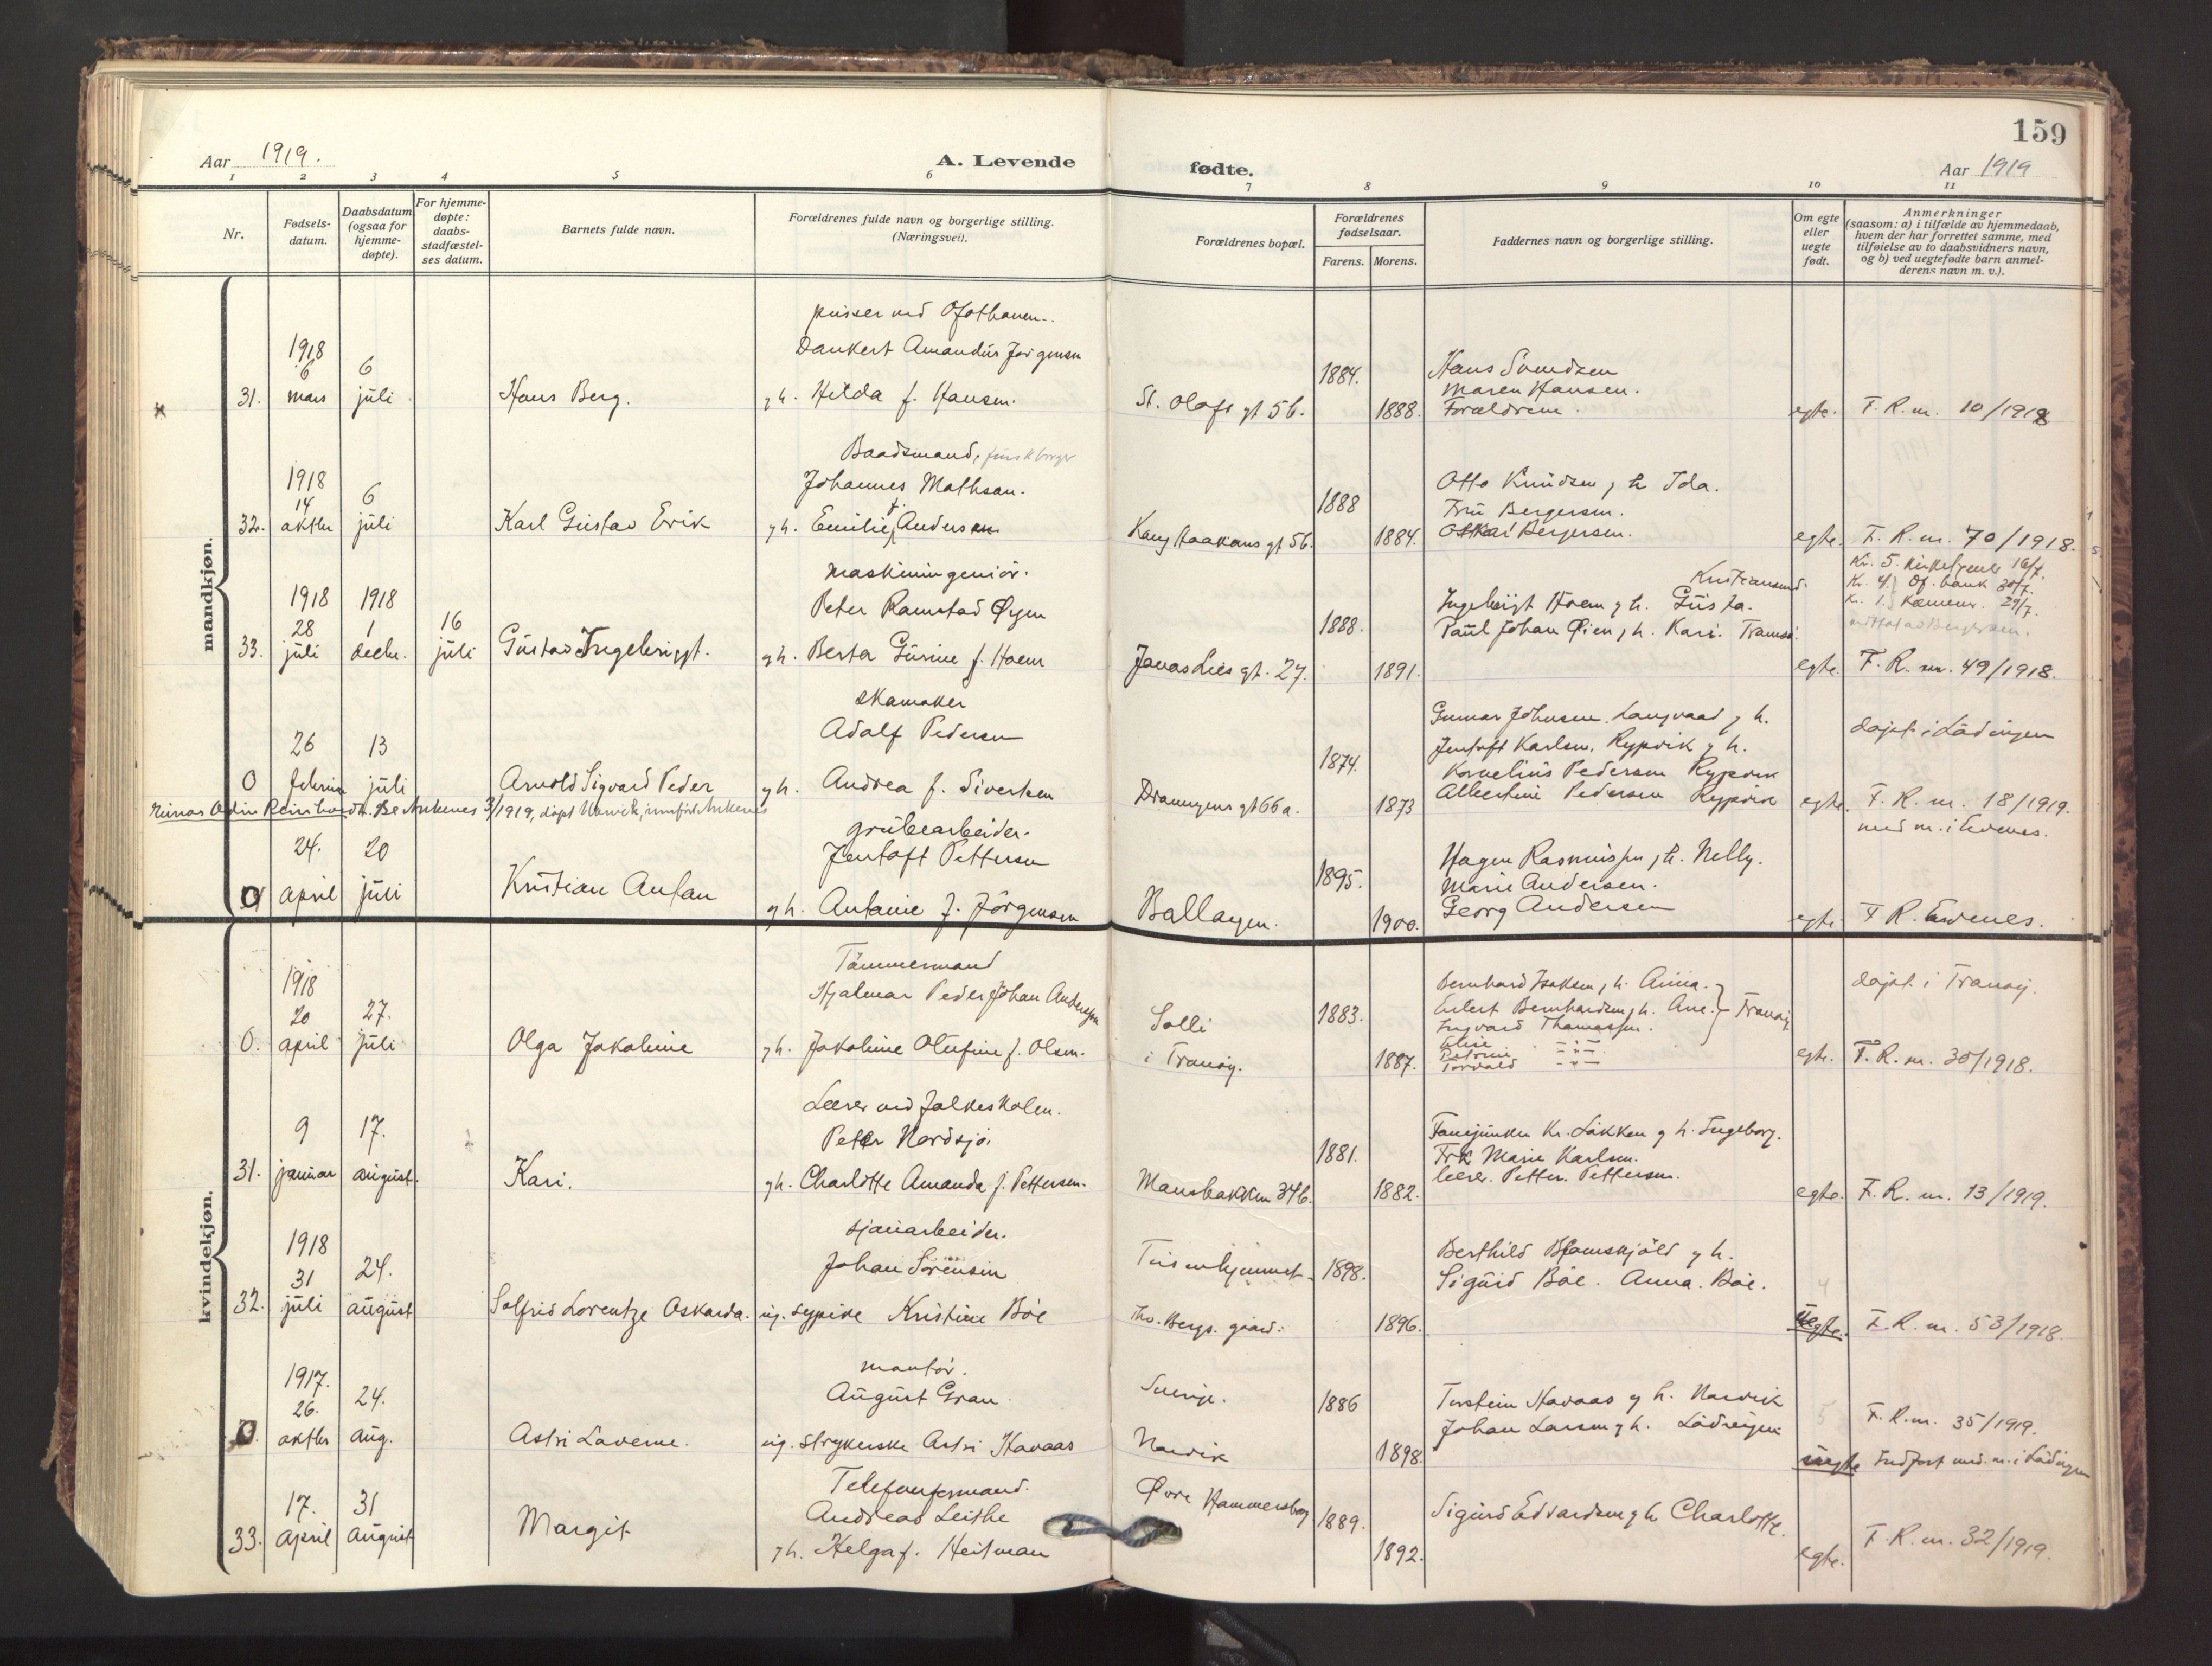 159
Aar 1919.
A. Levende
fødte.
Aar 1919
1 2 3 4 5 6 7 8 9 10 11
Nr.
Fødsels-
datum.
Daabsdatum
(ogsaa for
hjemme-
døpte).
For hjemme-
døpte:
daabs-
stadfæstel-
ses datum.
Barnets fulde navn.
Forældrenes fulde navn og borgerlige stilling.
(Næringsvei).
Forældrenes bopæl.
Forældrenes
fødselsaar.
Farens. Morens.
Faddernes navn og borgerlige stilling.
Om egte
eller
uegte
født.
Anmerkninger
(saasom: a) i tilfælde av hjemmedaab,
hvem der har forrettet samme, med
tilføielse av to daabsvidners navn,
og b) ved uegtefødte barn anmel-
derens navn m. v.).
mandkjøn.
31.
1918
6
mars
6
juli
Hans Berg.
pusser ved Ofotbanen.
Dankert Amandus Jørgensen
g h. Hilda f. Hansen.
St. Olafs gt 56.
1884.
1888.
Hans Svendsen
Maren Hansen.
Forældrene.
egte.
F. R. nr. 10/1918
32.
1918
14
oktbr
6
juli
Karl Gustav Erik
Baadsmand, finsk borger
Johannes Mathson.
g h. Emilie f. Anderson
Kong Haakons gt 56.
1888
1884.
Otto Knudsen g h Ida.
Fru Bergersen.
Oskar Bergersen.
egte.
F. R. nr. 70/1918.
33.
1918
28
juli
1918
1
decbr.
16
juli
Gustav Ingebrigt.
Maskiningeniör.
Peter Ramstad Øyen
g h. Berta Gurine f. Hoem
Jonas Lies gt. 27.
1888.
1891.
Kristiansund.
Ingebrigt Hoem g h. Gusta.
Paul Johan Øien g h. Kari. Tromsö.
egte.
Kr. 5. Kirketjener 16/7.
Kr. 4. Of. bank 30/7.
Kr. 1. Kæmner. 29/7.
F. R. nr. 49/1918.
0
26
februar
13
juli
Arnold Sigvard Peder
skomaker
Adolf Pedersen
g h. Andrea f. Sivertsen
Dronningens gt 66 a.
1874.
1873
Gunnar Johnsen. Langvaad g h.
Jentoft Karlsen. Rypvik g h.
Kornelius Pedersen Rypvik
Albertine Pedersen Rypvik
egte.
døpt i Lödingen
F. R. nr. 18/1919.
med nr. i Evenes.
0
24.
april
20
juli
Kristian Anton
grubearbeider.
Jentoft Pettersen
g h. Antonie f. Jörgensen
Ballangen.
1895.
1900.
Hagen Rasmussen g h. Nelly.
Marie Andersen.
Georg Andersen
egte
F R. Evenes.
kvindekjøn.
0.
1918
20
april
27.
juli
Olga Jakobine
Tömmermand
Hjalmar Peder Johan Andersen
g h. Jakobine Olufine f. Olsen.
Solli
i Tranöy.
1883.
1887.
Bernhard Isaksen g h. Anna.
Edert Bernhardsen g h. Ane. } Tranöy
Ingvard Thomassen.
Elise - " -
Petrine - " -
Torvald - " -
egte.
døpt i Tranöy.
F. R. nr. 30/1918.
31.
9
januar
17.
august.
Kari.
Lærer ved folkeskolen.
Peter Nordsjö.
g h. Charlotte Amanda f. Pettersen.
Mausbakken 34b.
1881.
1882.
Fanejunker Kr. Løkken g h. Ingeborg.
Frk Marie Karlsen.
lærer. Petter Pettersen.
egte.
F. R. nr. 13/1919.
32.
1918
31
juli
24.
august
Solfrid Lorentze Oskarda.
sjauarbeider.
Johan Sörensen
ug. sypike Kristine Böe
Turisthjemmet
Tho. Bergs. gaard.
1898.
1896.
Berthild Blomskjöld g h.
Sigurd Böe. Anna. Böe.
uegte.
F. R. nr. 53/1918.
0
1917.
26.
oktbr
24.
aug.
Astri Laverne.
montör.
August Gran
ug. strykerske Astri Havaas
Sverige.
Narvik
1886
1898.
Torstein Havaas g h. Narvik
Johan Larsen g h. Lödingen
uegte
F. R. nr. 35/1919.
Indført med nr. i Lödingen
33.
17.
april
31
august
Margit
Telefonformand.
Andreas Leithe
g h. Helga f. Heitman
Øvre Hammersborg
1889.
1892.
Sigurd Edvardsen g h Charlotte.
egte.
F. R. nr. 32/1919.